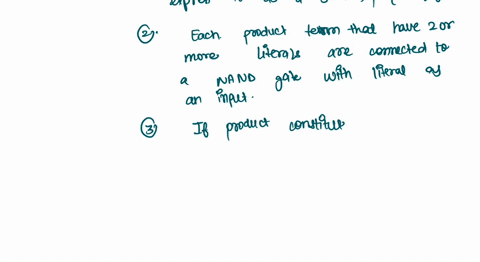 ②. Each product term that have 2 or
more literals are connected to
a NAND gate with literal as
an input.
③. If product constitue